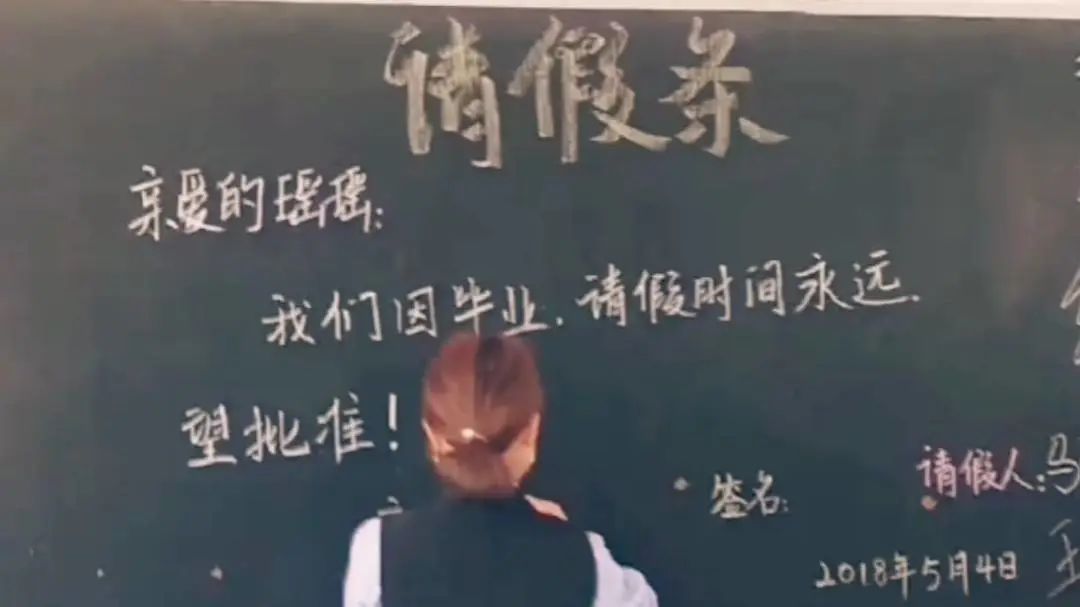 请假条
亲爱的瑶瑶：
我们因毕业，请假时间永远，
望批准！
签名：
请假人：马
2018年5月4日